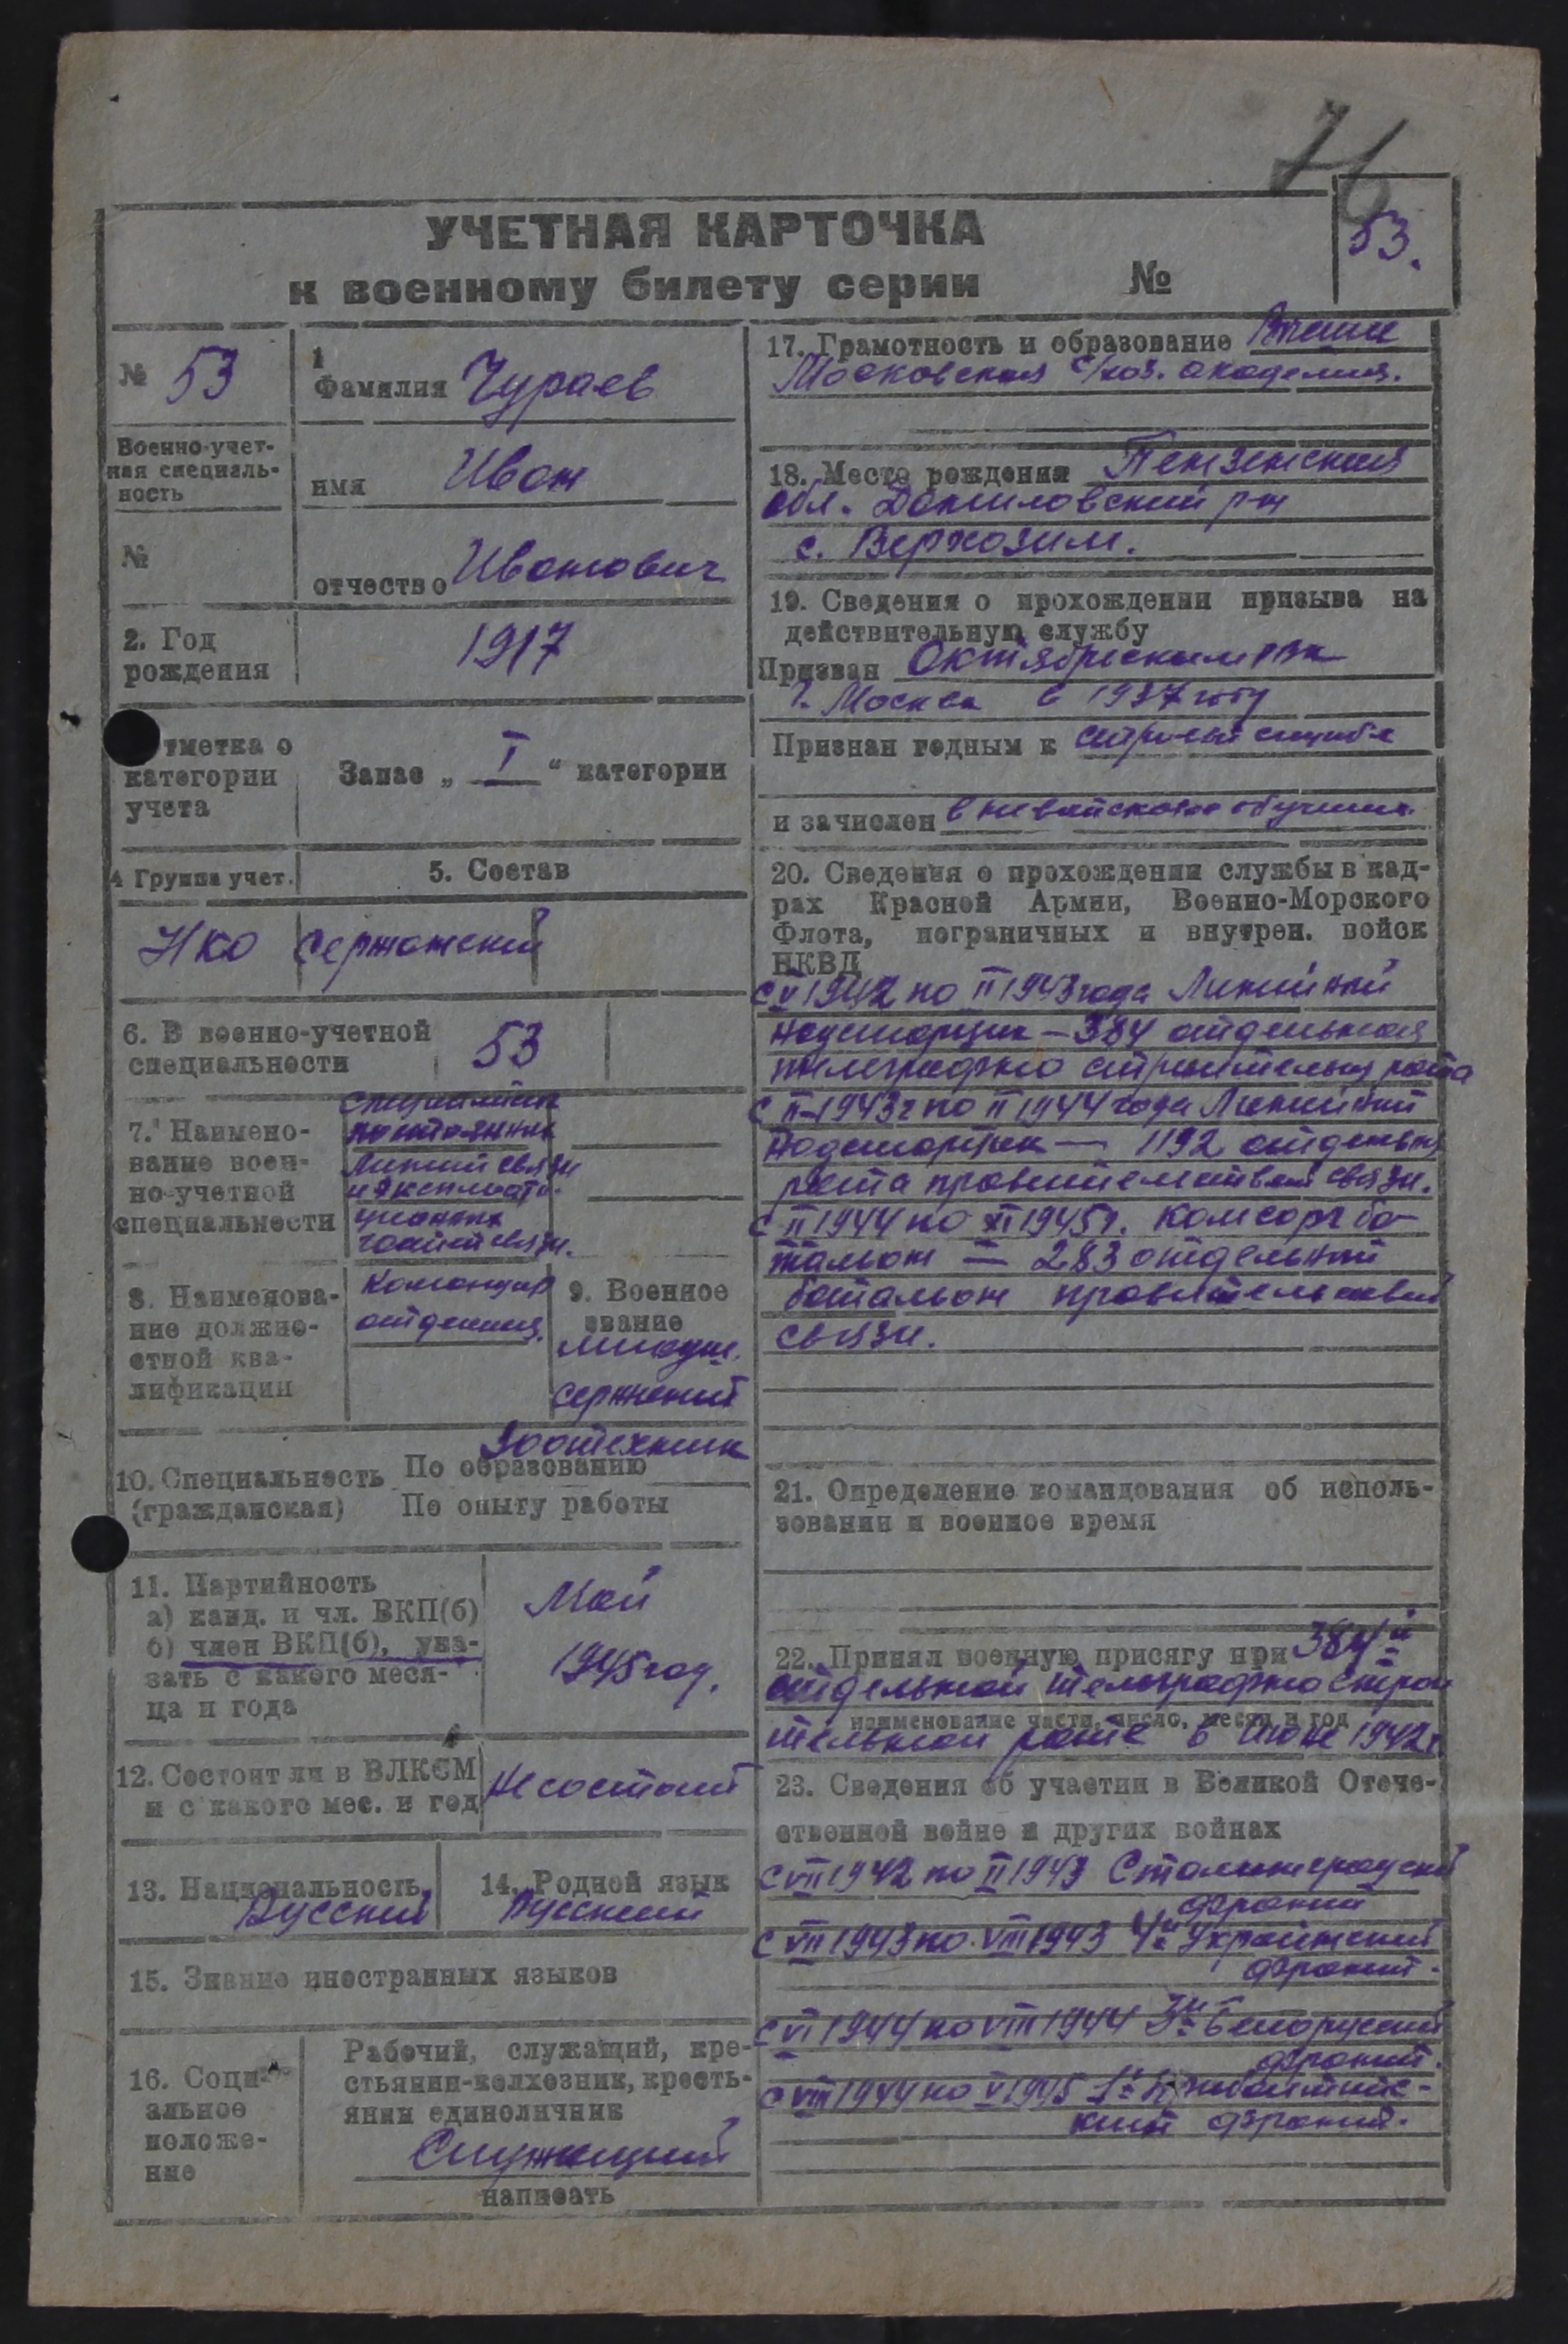 76
53.
УЧЕТНАЯ КАРТОЧКА
к военному билету серии №
№ 53
1
Фамилия Чураев
Военно-учет-
ная специаль-
ность
имя Иван
№
отчество Иванович
2. Год
рождения
1917
тметка о
категории
учета
Запас „ I “ категории
4 Группа учет.
5. Состав
НКО
Сержантский
6. В военно-учетной
специальности
53
7. Наимено-
вание воен-
но-учетной
специальности
Специалист
постоянных
Линий связи
и эксплоата-
ционных
частей связи.
8. Наименова-
ние должно-
стной ква-
лификации
Командир
отделения.
9. Военное
звание
младш.
сержант
Зоотехник
10. Специальность По образованию
(гражданская) По опыту работы
11. Партийность
а) канд. и чл. ВКП(б)
б) член ВКП(б), ука-
зать с какого меся-
ца и года
Май
1945 год.
12. Состоит ли в ВЛКСМ
и с какого мес. и год
Не состоит
13. Национальность
Русский
14. Родной язык
Русский
15. Знание иностранных языков
16. Соци-
альное
положе-
ние
Рабочий, служащий, кре-
стьянин-колхозник, кресть-
янин единоличник
Служащий
написать
17. Грамотность и образование Высшее
Московская с/хоз. академия.
18. Место рождения Пензенская
обл. Даниловский р-н
с. Верхозим.
19. Сведения о прохождении призыва на
действительную службу
Призван Октябрьским РВК
г. Москва в 1937 году
Признан годным к строевой службе
и зачислен вневойсковое обучение.
20. Сведения о прохождении службы в кад-
рах Красной Армии, Военно-Морского
Флота, пограничных и внутрен. войск
НКВД
с V 1942 по II 1943 года Линейный
надсмотрщик — 384 отдельная
телеграфно строительная рота
с II-1943 г по II 1944 года Линейный
Надсмотрщик — 1192 отдельная
рота правительствен связи.
с II 1944 по XI 1945 г. Комсорг ба-
тальон — 283 отдельный
батальон правительствен
связи.
21. Определение командования об исполь-
зовании и военное время
22. Принял военную присягу при 384й
отдельной телеграфно строи
наименование части, число, месяц и год
тельной роте в июне 1942 г.
23. Сведения об участии в Великой Отече-
ственной войне и других войнах
с VII 1942 по II 1943 Сталинградский
фронт
с VII 1943 по VIII 1943 4й Украинский
фронт.
с VI 1944 по VIII 1944 3й Белорусский
фронт.
с VIII 1944 по V 1945 1й Прибалтийс-
кий фронт.